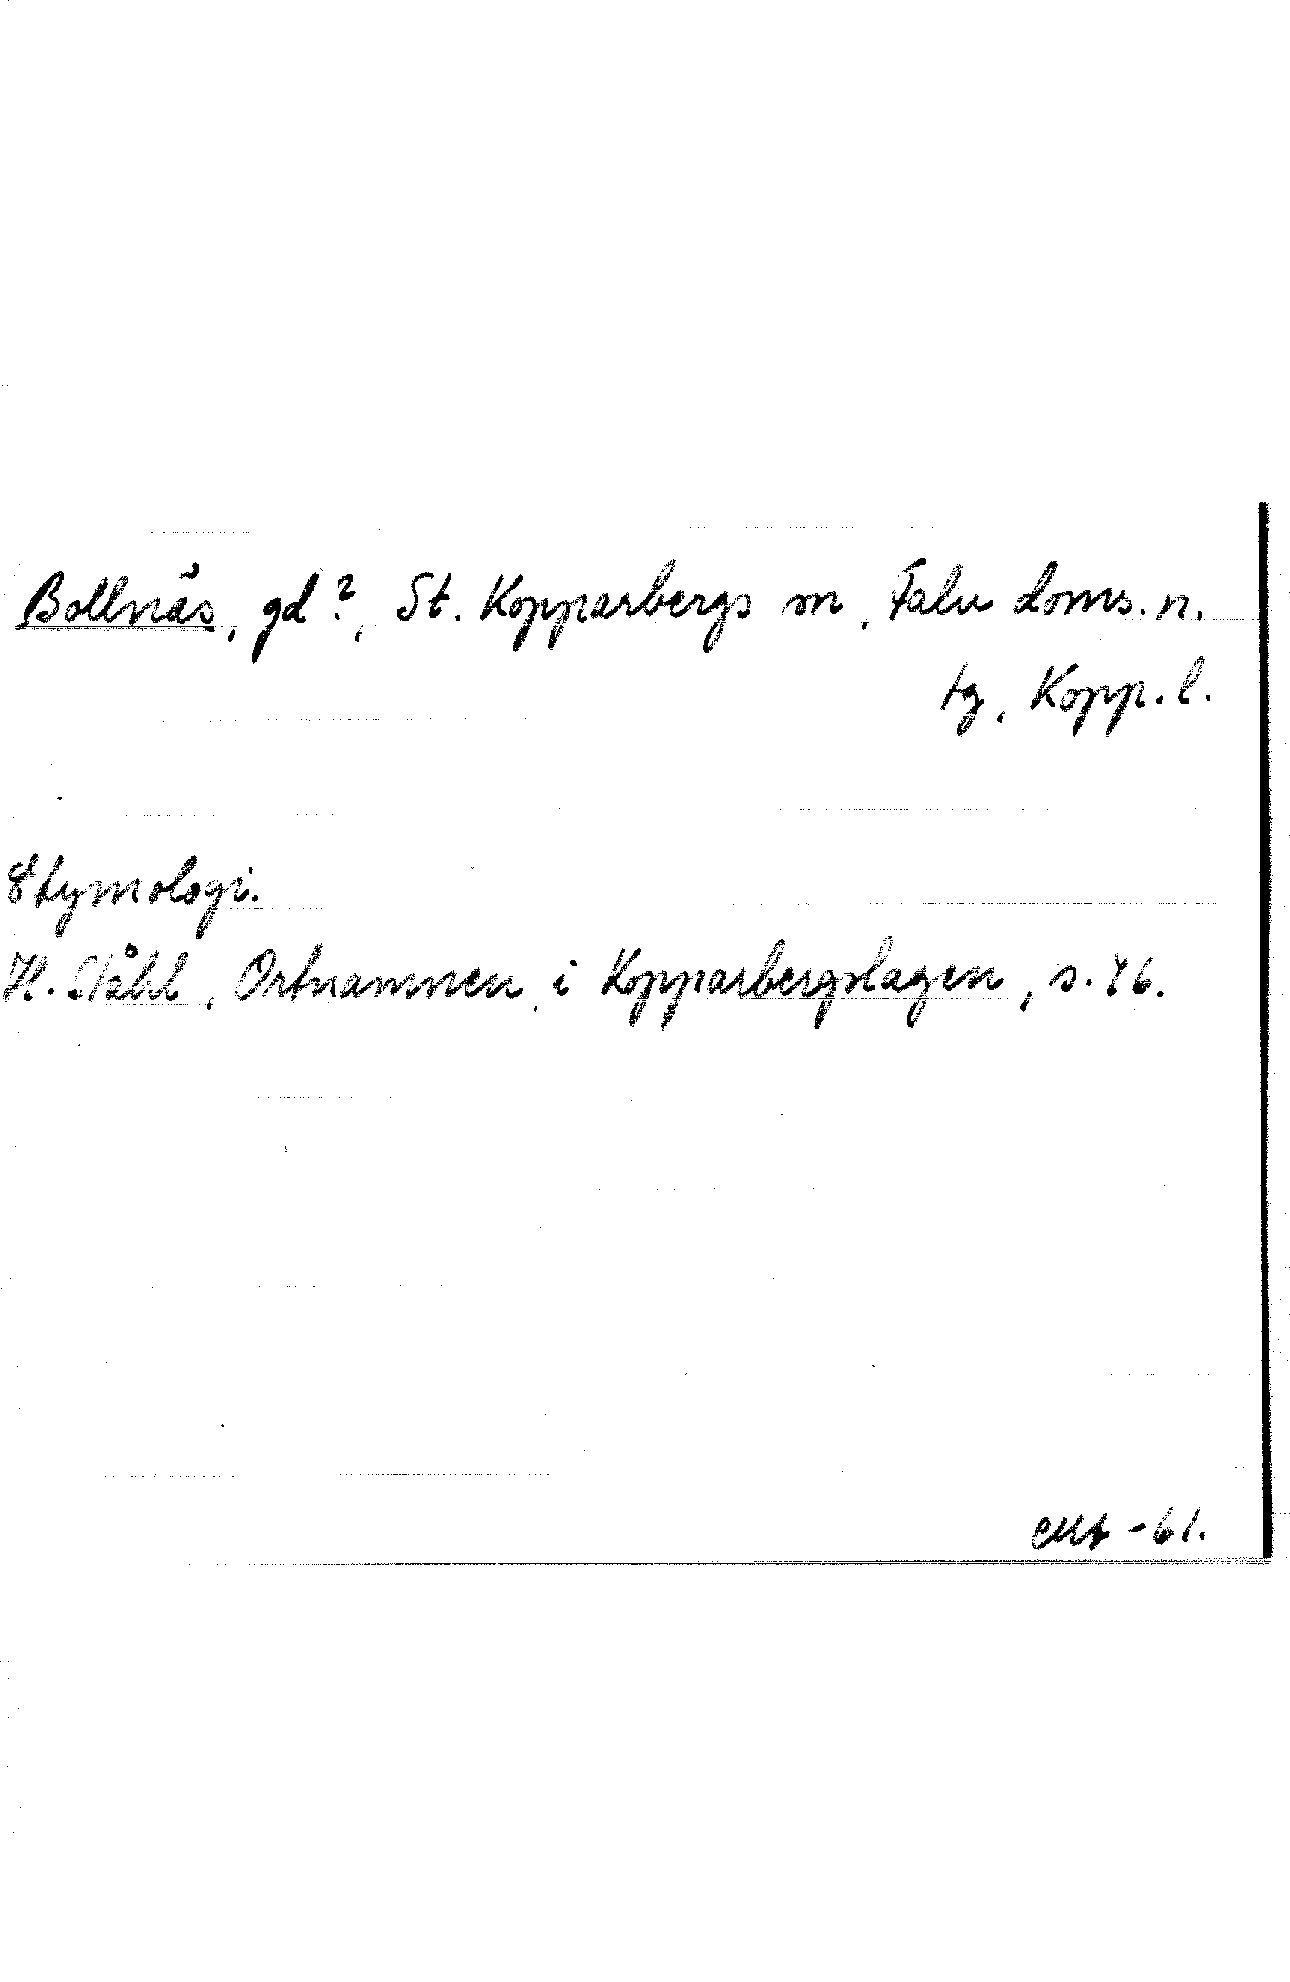 Bollnäs, gd?, St. Kopparbergs sn, Falu doms. n.
tg, Kopp. l.
Etymologi.
H. Ståhl, Ortnamnen i Kopparbergslagen, s. 76.
-61.